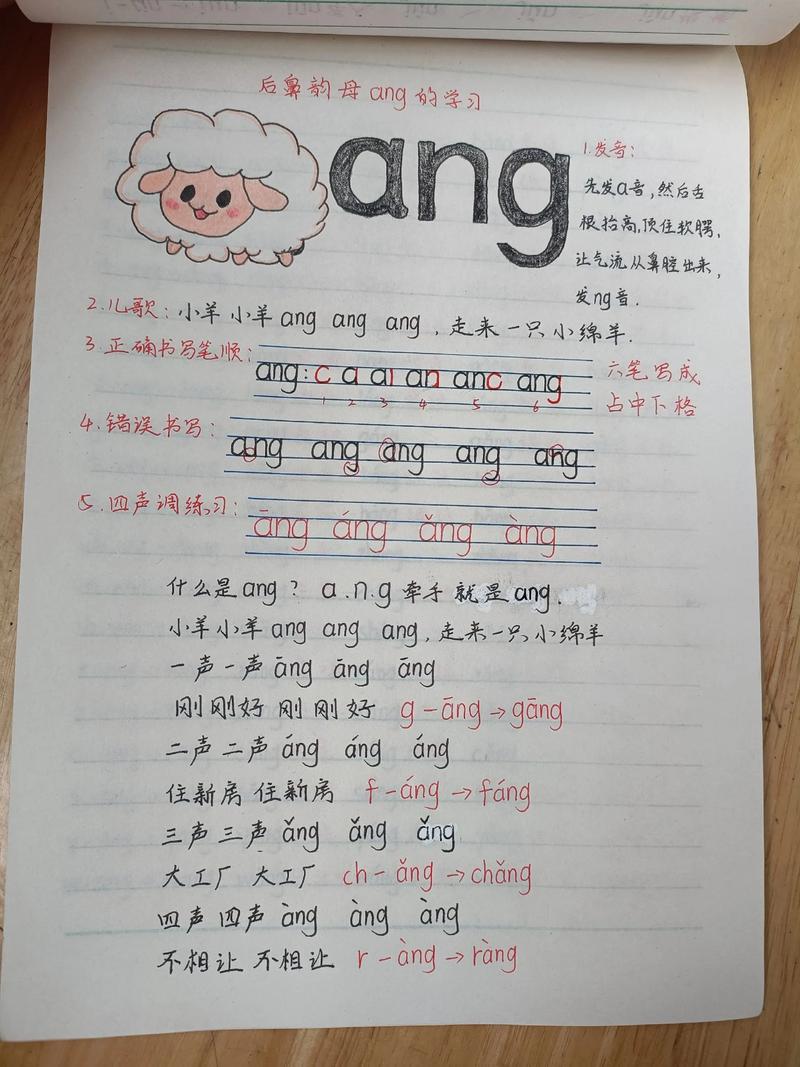 后鼻韵母ang的学习
ang
1.发音:
先发a音,然后舌
根抬高,顶住软腭,
让气流从鼻腔出来,
发ng音.
2.儿歌:小羊小羊ang ang ang,走来一只小绵羊.
3.正确书写笔顺:
ang:c a aı an anc ang
1 2 3 4 5 6
六笔写成
占中下格
4.错误书写:
ang ang ang ang ang
5.四声调练习:
āng áng ǎng àng
什么是ang? a.n.g牵手就是ang.
小羊小羊ang ang ang,走来一只小绵羊
一声一声āng āng āng
刚刚好刚刚好 g-āng→gāng
二声二声áng áng áng
住新房住新房 f-áng→fáng
三声三声ǎng ǎng ǎng
大工厂大工厂 ch-ǎng→chǎng
四声四声àng àng àng
不相让不相让 r-àng→ràng